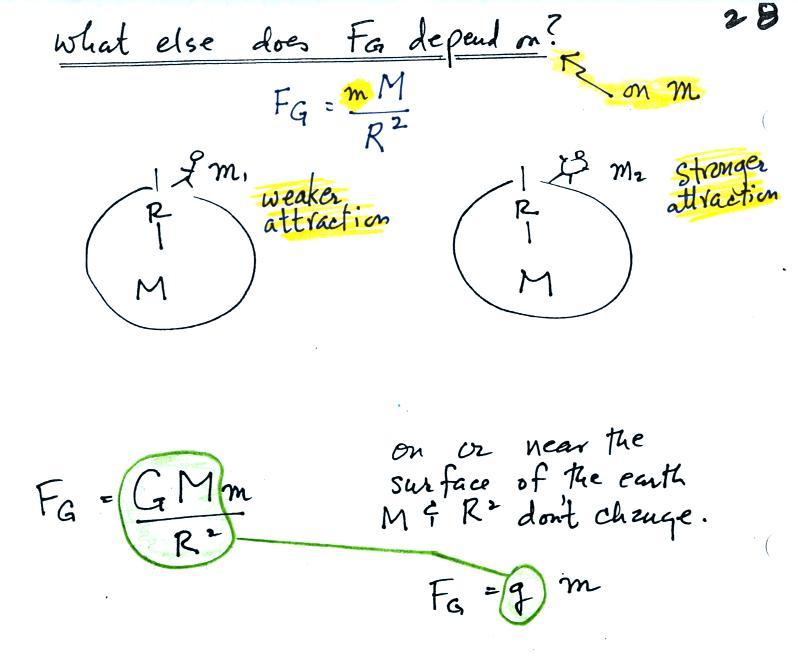 28
what else does FG depend on?
on m
FG = mM
R²
m₁
weaker
attraction
R
M
m₂
stronger
attraction
R
M
on or near the
surface of the earth
M & R² don't change.
FG = GMm
R²
FG = g m